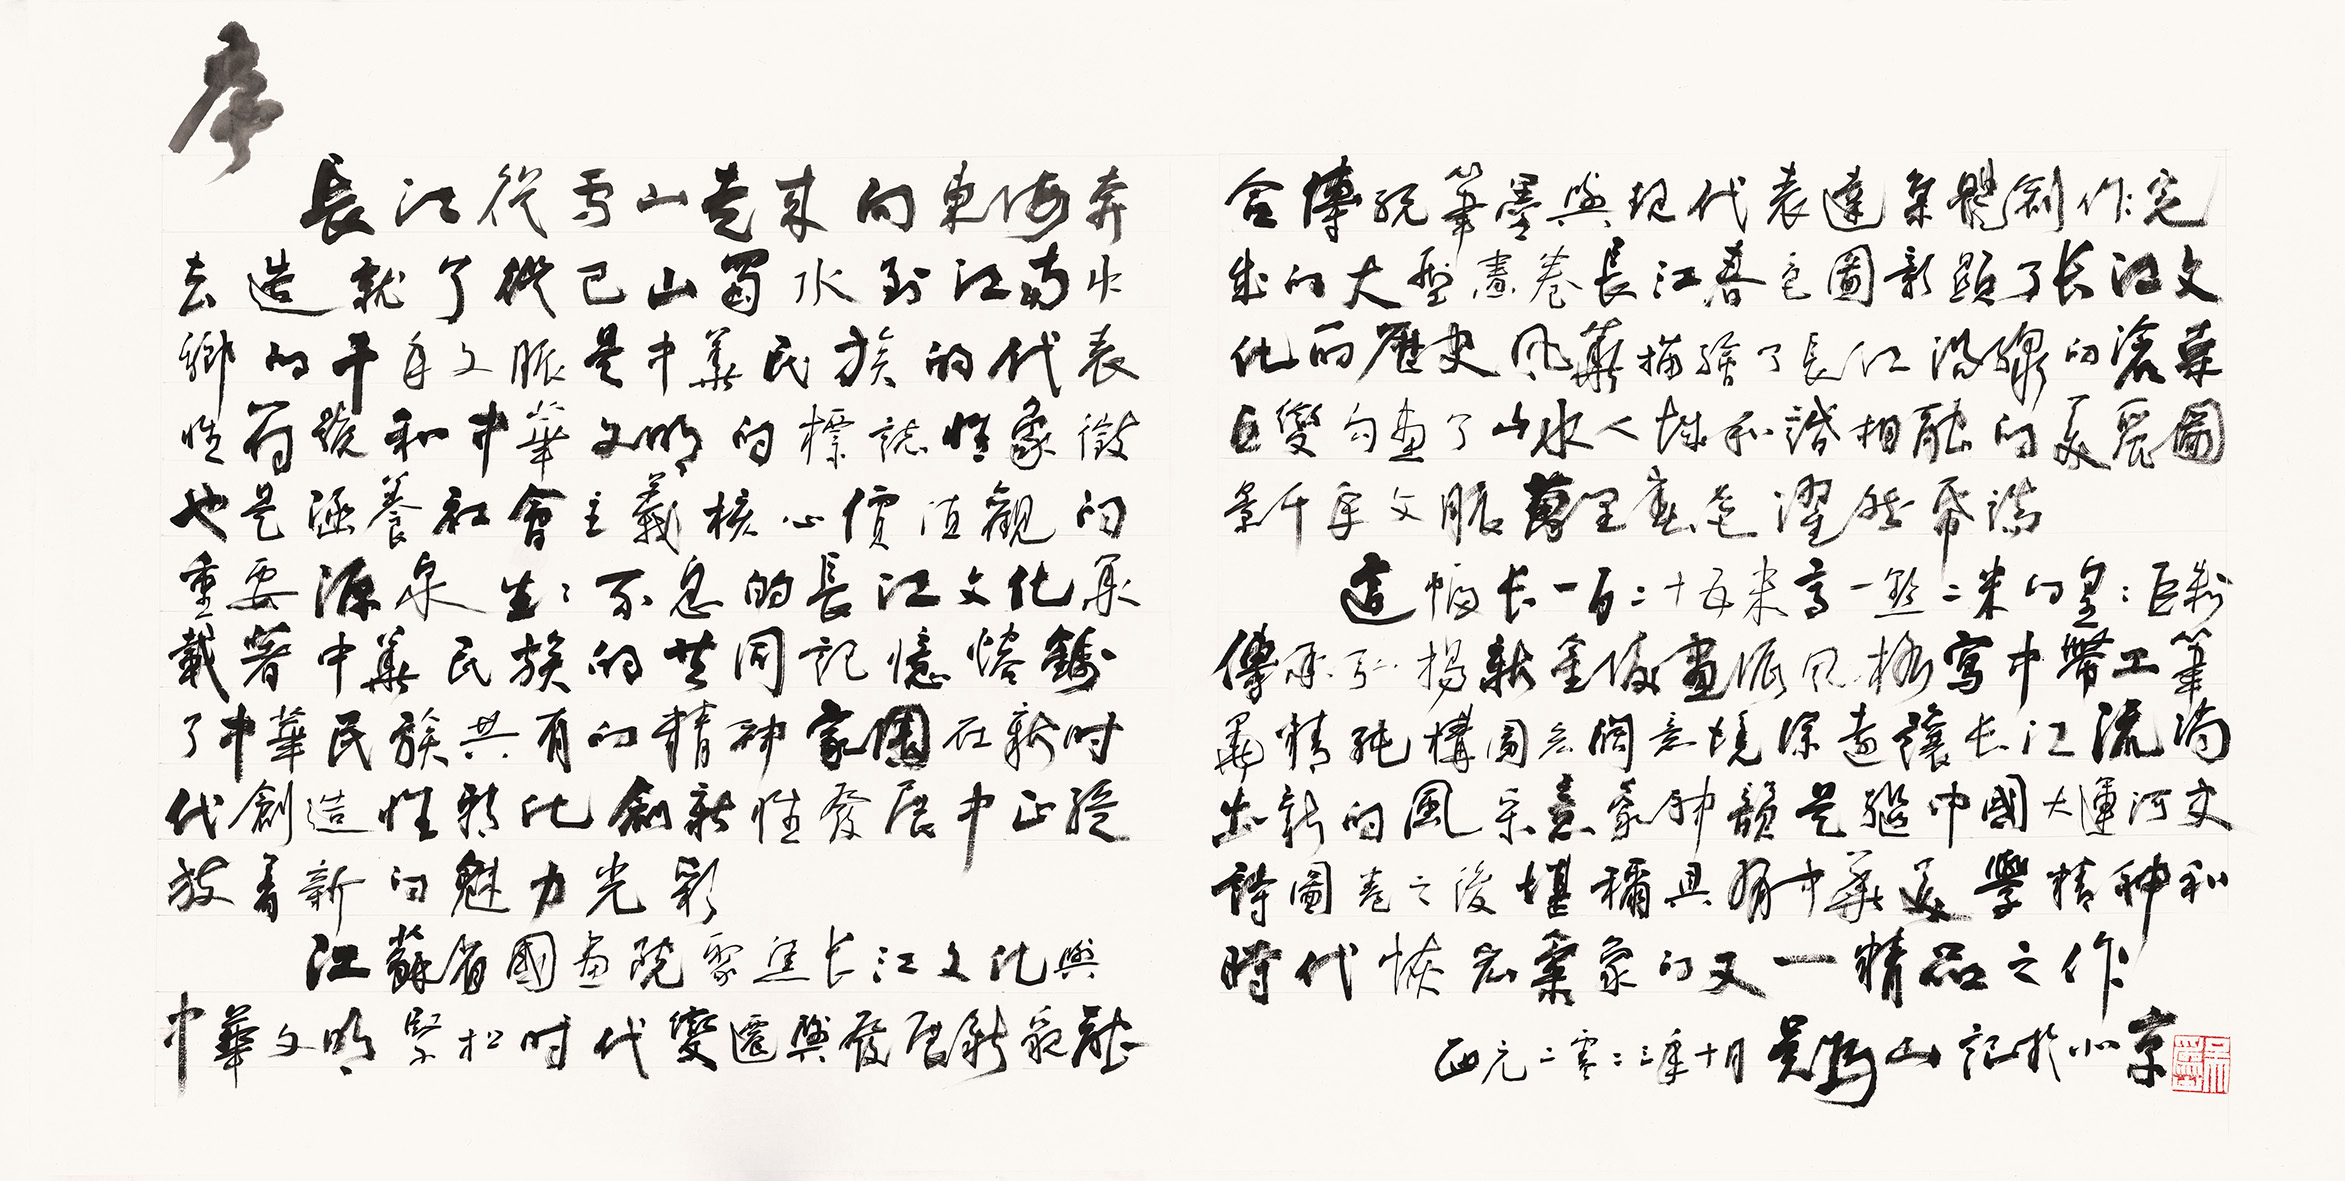 序
長江從雪山走來向東海奔
去造就了從巴山蜀水到江南水
鄉的千年文脈是中華民族的代表
性符號和中華文明的標誌性象徵
也是涵養社會主義核心價值觀的
重要源泉生〻不息的長江文化承
載著中華民族的共同記憶熔鑄
了中華民族共有的精神家園在新时
代創造性轉化創新性發展中正綻
放着新的魅力光彩
江蘇省國畫院聚焦长江文化與
中華文明緊扣时代變遷與發展新貌融
合傳統筆墨與現代表達集體創作完
成的大型畫卷長江春色圖彰顯了长江文
化的歷史風華描繪了長江沿線的滄桑
巨變勾画了山水人城和諧相融的美麗圖
景千年文脈萬里春色躍然帋端
這幅长一百二十五米高一點二米的皇〻巨制
傳承弘揚新金陵畫派風格寫中帶工筆
墨精純構圖宏闊意境深遠讓长江流淌
出新的風采意象神韻是繼中國大運河史
詩圖卷之後堪稱具有中華美學精神和
時代恢宏氣象的又一精品之作
西元二零二三年十月吴為山記於北京